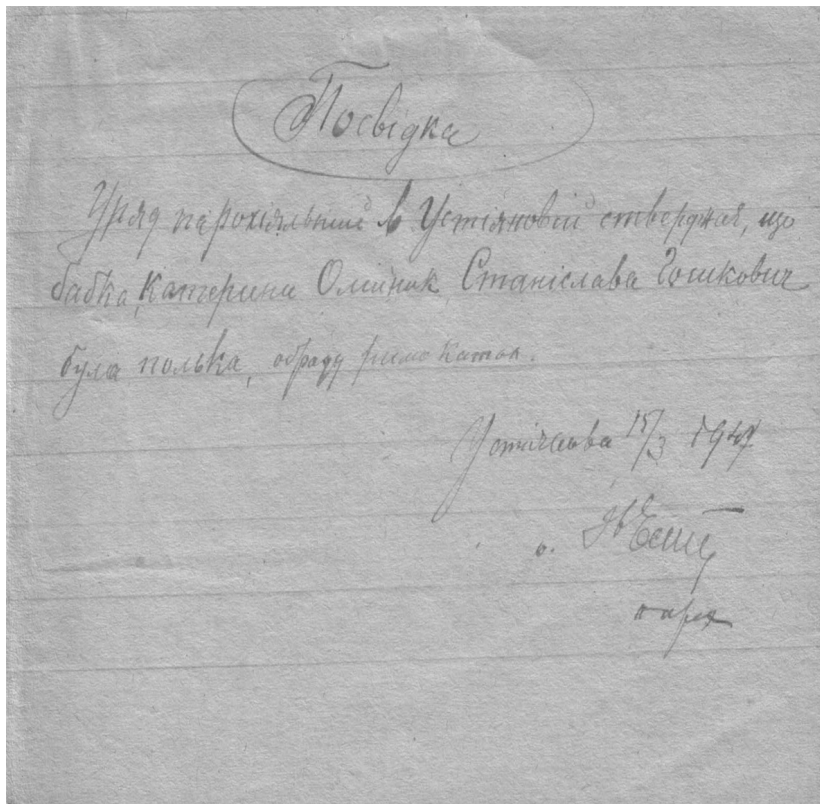 Посвідка
Уряд парохіяльний в Устіяновій стверджує, що
бабка, Катерина Олійник, Станіслава Гошкович
була полька, обряду римо катол.
Устіянова 15/3 1947
о.
парох